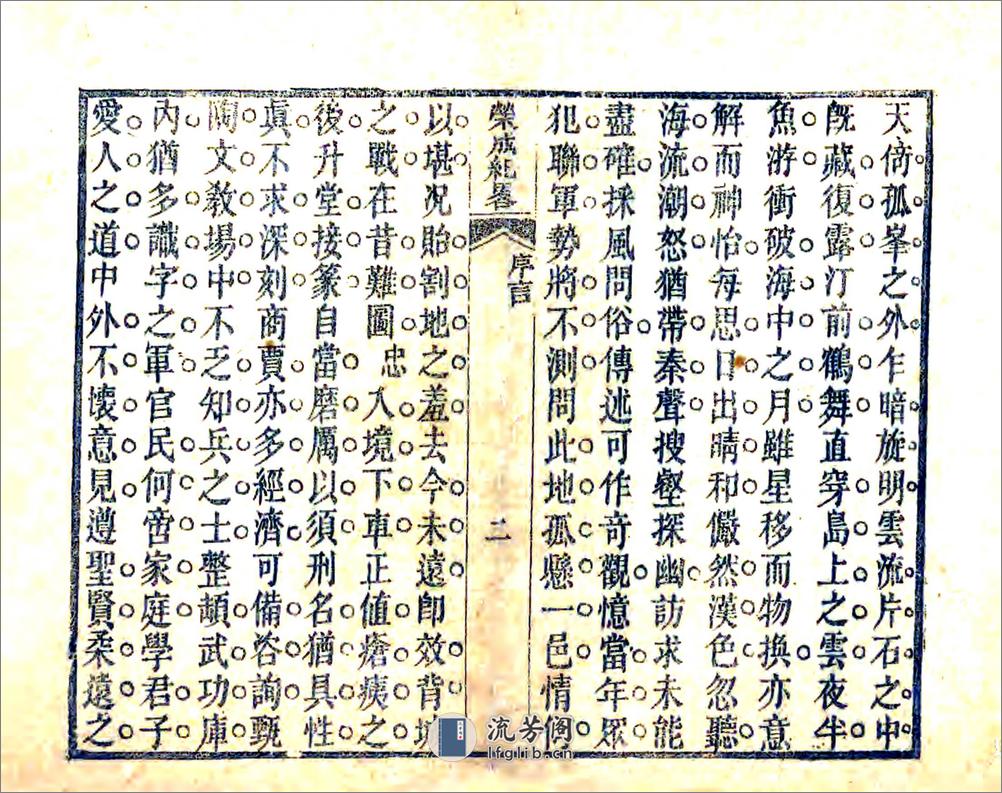 天倚孤峯之外乍暗旋明雲流片石之中
旣藏復露汀前鶴舞直穿島上之雲夜半
魚游衝破海中之月雖星移而物換亦意
解而神怡每思日出晴和儼然漢色忽聽
海流潮怒猶帶秦聲搜壑探幽訪求未能
盡確採風問俗傳述可作奇觀憶當年眾
犯聯軍勢將不測問此地孤懸一邑情
榮成紀畧 序言 二
以堪况貽割地之羞去今未遠卽效背城
之戰在昔難圖忠入境下車正值瘡痍之
後升堂接篆自當磨厲以須刑名猶具性
眞不求深刻商賈亦多經濟可備咨詢甄
陶文教塲中不乏知兵之士整頓武功庫
內猶多識字之軍官民何啻家庭學君子
愛人之道中外不懷意見遵聖賢柔遠之
流芳阁
lfglib.cn